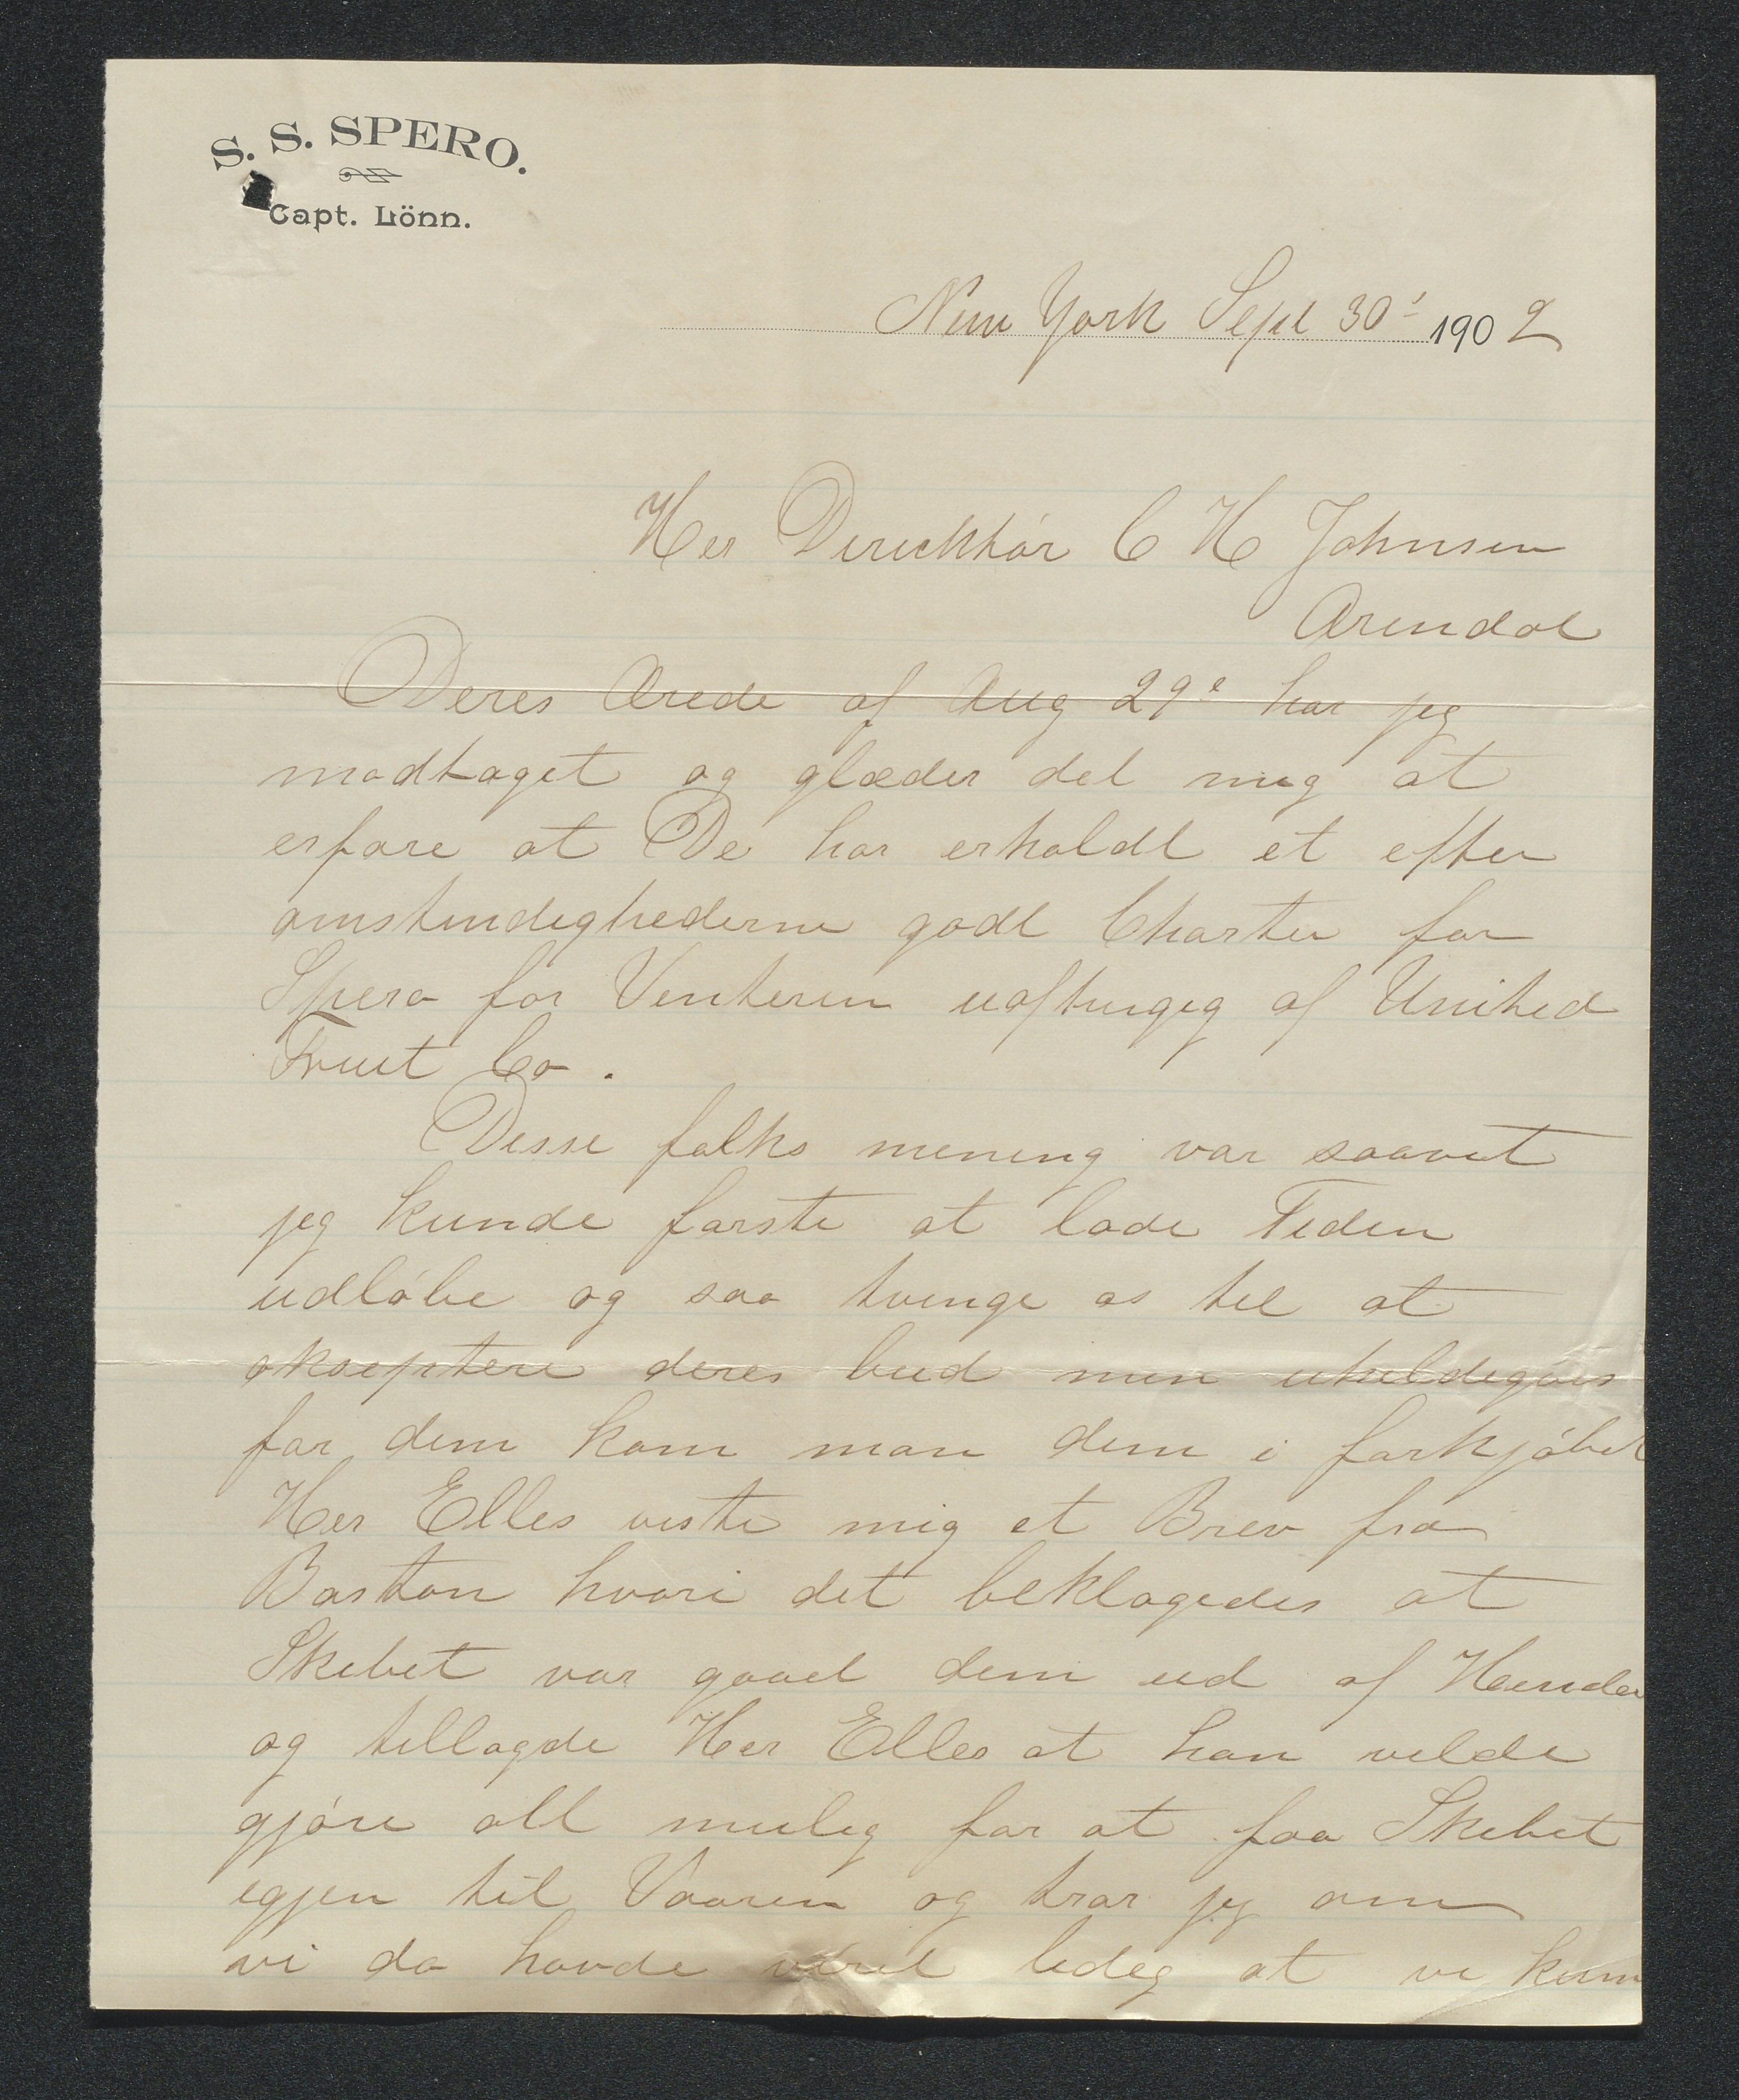 S. S. SPERO.
Capt. Lönn.
New York Sept 30' 1902
Her Direcktör C H Johnsen
Arendal
Deres Ærede af Aug 29e har jeg
modtaget og glæder det mig at
erfare at De har erholdt et efter
omstendighederne godt Charter for
Spero for Venteren uafhengig af United
Fruit Co.
Disse folks mening var saavit
jeg kunde forste at lade Tiden
udløbe og saa tvinge os til at
akseptere deres bud men uheldigvis
for dem kom man dem i forkjøbet
Her Elles viste mig et Brev fra
Boston hvori det beklagedes at
Skibet var gaaet dem ud af Hænder
og tillagde Her Elles at han vilde
gjøre alt mulig for at faa Skibet
igjen til Vaaren og tror jeg om
vi da havde véret ledig at vi kun